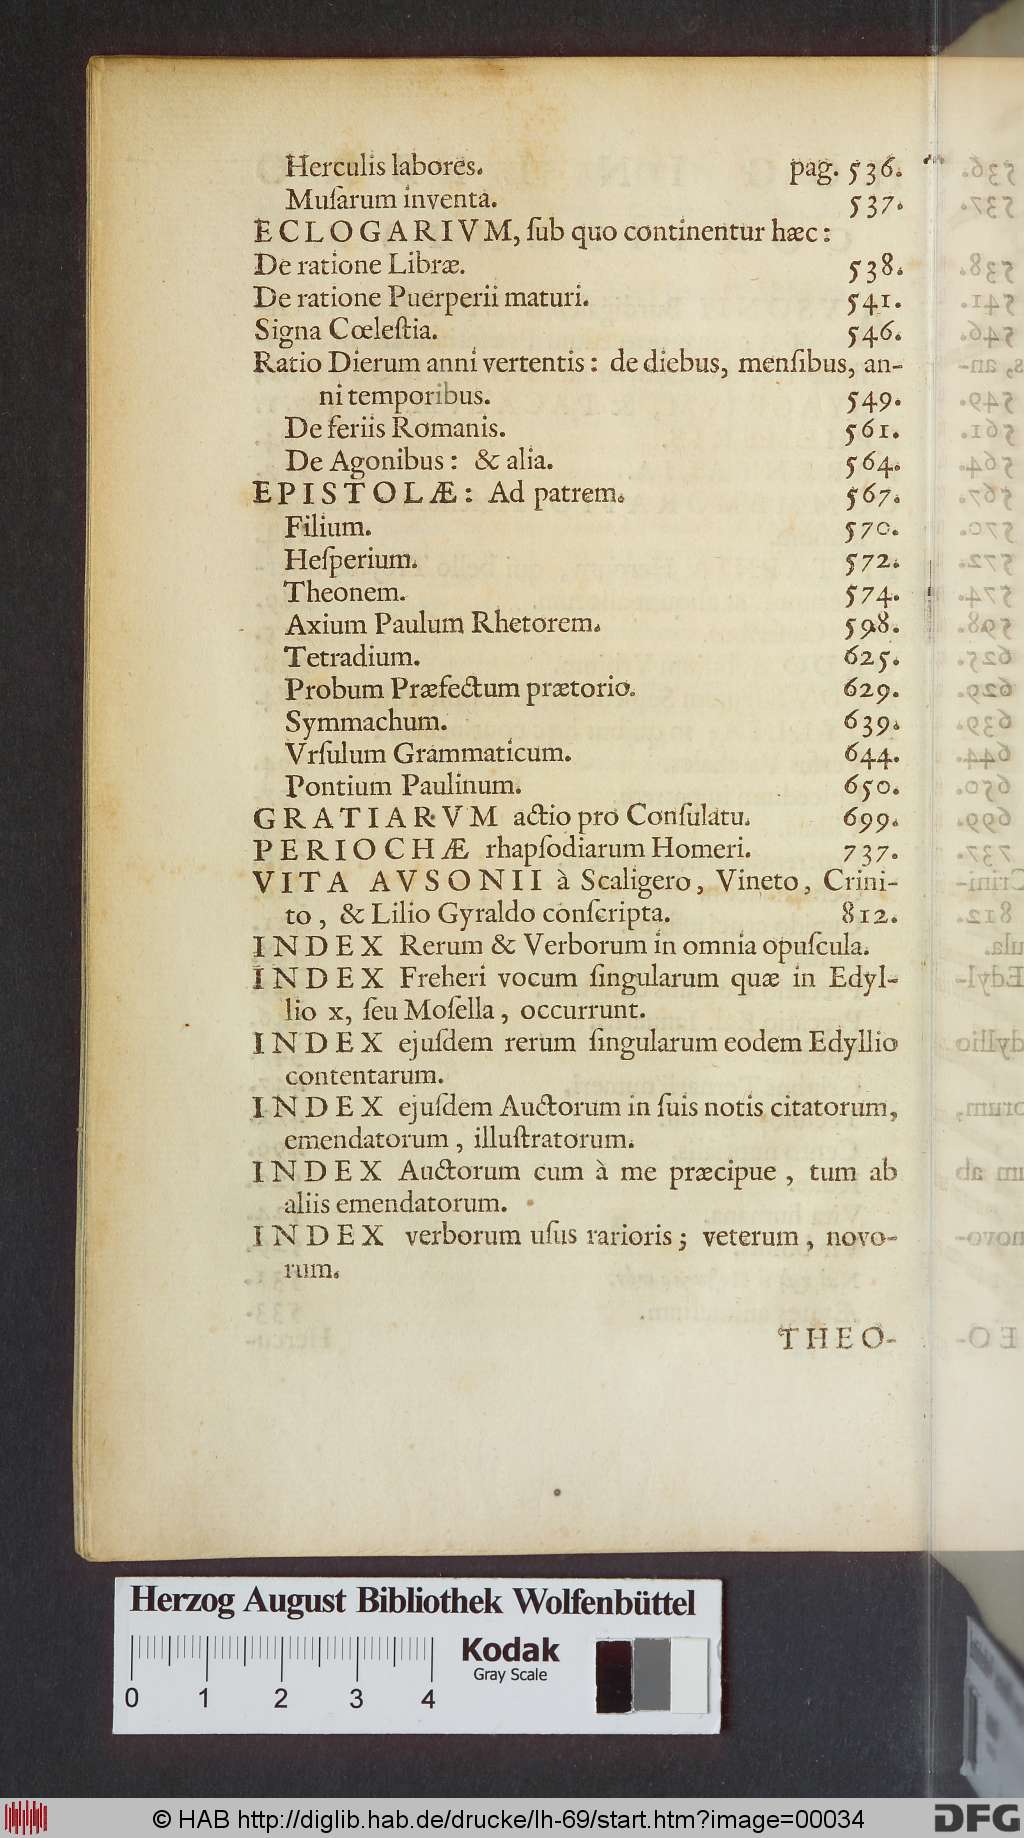 Herculis labores. pag. 536.
Muſarum inventa. 537.
ECLOGARIVM, ſub quo continentur hæc:
De ratione Libræ. 538.
De ratione Puerperii maturi. 541.
Signa Cœleſtia. 546.
Ratio Dierum anni vertentis: de diebus, menſibus, an-
ni temporibus. 549.
De feriis Romanis. 561.
De Agonibus: & alia. 564.
EPISTOLÆ: Ad patrem. 567.
Filium. 570.
Heſperium. 572.
Theonem. 574.
Axium Paulum Rhetorem. 598.
Tetradium. 625.
Probum Præfectum prætorio. 629.
Symmachum. 639.
Vrſulum Grammaticum. 644.
Pontium Paulinum. 650.
GRATIARVM actio pro Conſulatu. 699.
PERIOCHÆ rhapſodiarum Homeri. 737.
VITA AVSONII à Scaligero, Vineto, Crini-
to, & Lilio Gyraldo conſcripta. 812.
INDEX Rerum & Verborum in omnia opuſcula.
INDEX Freheri vocum ſingularum quæ in Edyl-
lio x, ſeu Moſella, occurrunt.
INDEX ejuſdem rerum ſingularum eodem Edyllio
contentarum.
INDEX ejuſdem Auctorum in ſuis notis citatorum,
emendatorum, illuſtratorum.
INDEX Auctorum cum à me præcipue, tum ab
aliis emendatorum.
INDEX verborum uſus rarioris; veterum, novo-
rum.
THEO-
Herzog August Bibliothek Wolfenbüttel
Kodak
Gray Scale
0 1 2 3 4
© HAB http://diglib.hab.de/drucke/lh-69/start.htm?image=00034
DFG